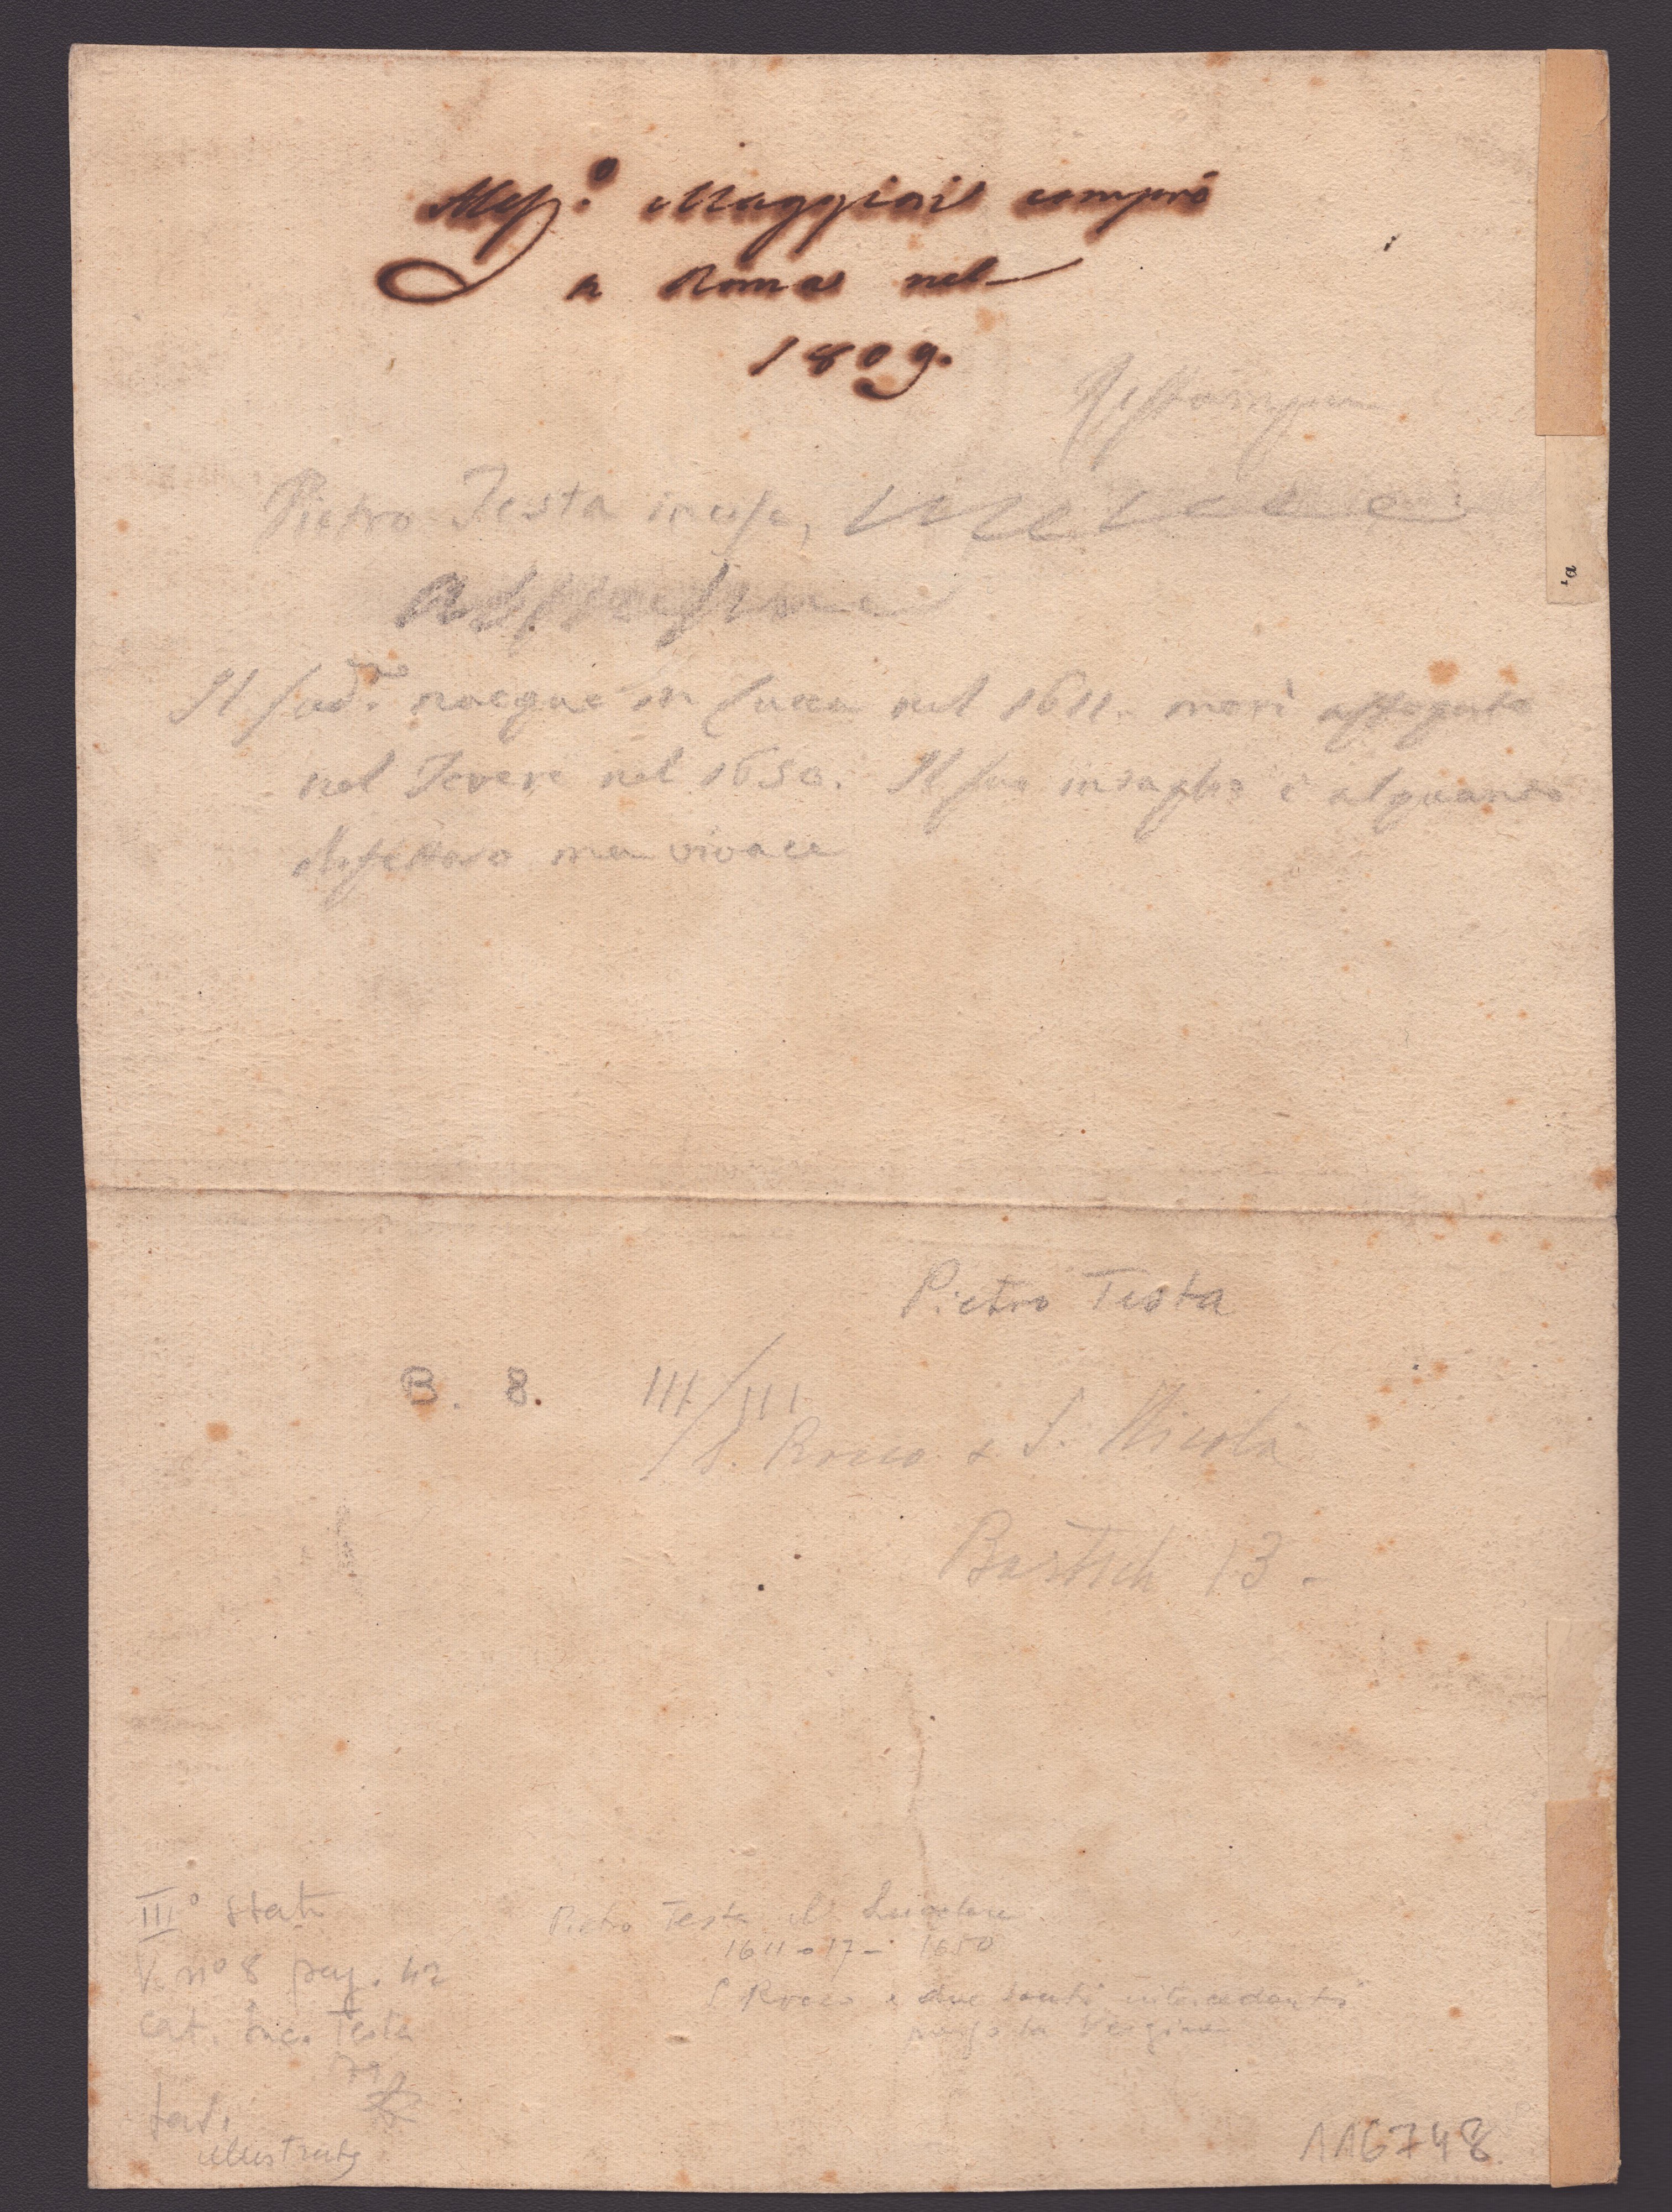 Aless.º Maggiori comprò
a Roma nel
1809.
Pietro Testa incise,
Il sud.º nacque in Lucca nel 1611. morì affogato
nel Tevere nel 1650. Il suo intaglio è alquanto
difettoso ma vivace
Pietro Testa
B. 8. III/III
S. Rocco e S. Nicola
Bartsch 13.
IIIº stato
V. nº 8 pag. 42
cat. inc. Testa
illustrato
Pietro Testa il Lucchese
1611 o 17 - 1650
S. Rocco e due santi intercedenti
presso la Vergine
116748.